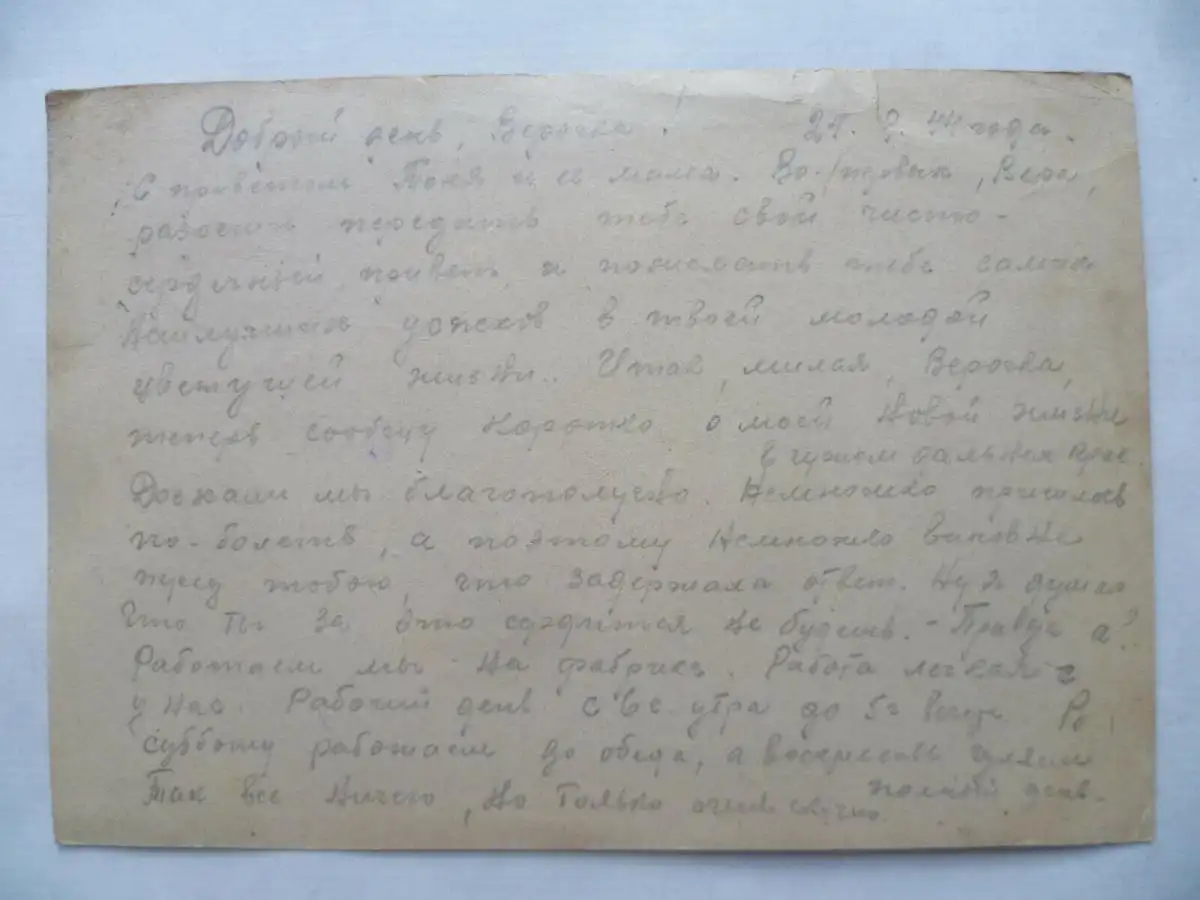 Добрый день, Верочка! 44 года.
С приветом Тоня и её мама. Во-первых, Вера,
разреши передать тебе свой чисто-
сердечный привет и пожелать тебе самых
наилучших успехов в твоей молодой
цветущей жизни.. Итак, милая, Верочка,
теперь сообщу коротко о моей новой жизни
в чужом дальнем крае
Доехали мы благополучно. Немножко пришлось
по-болеть, а поэтому немножко виновна
перед тобою, что задержала ответ. Ну я думаю
что ты за это сердится не будешь. - Правда а?
Работаем мы на фабрике. Работа легкая
у нас. Рабочий день с 6 ч. утра до 5 ч вечера
субботу работаем до обеда, а воскресень гуляем
полный день.
Так все ничего, но только очень скучно.